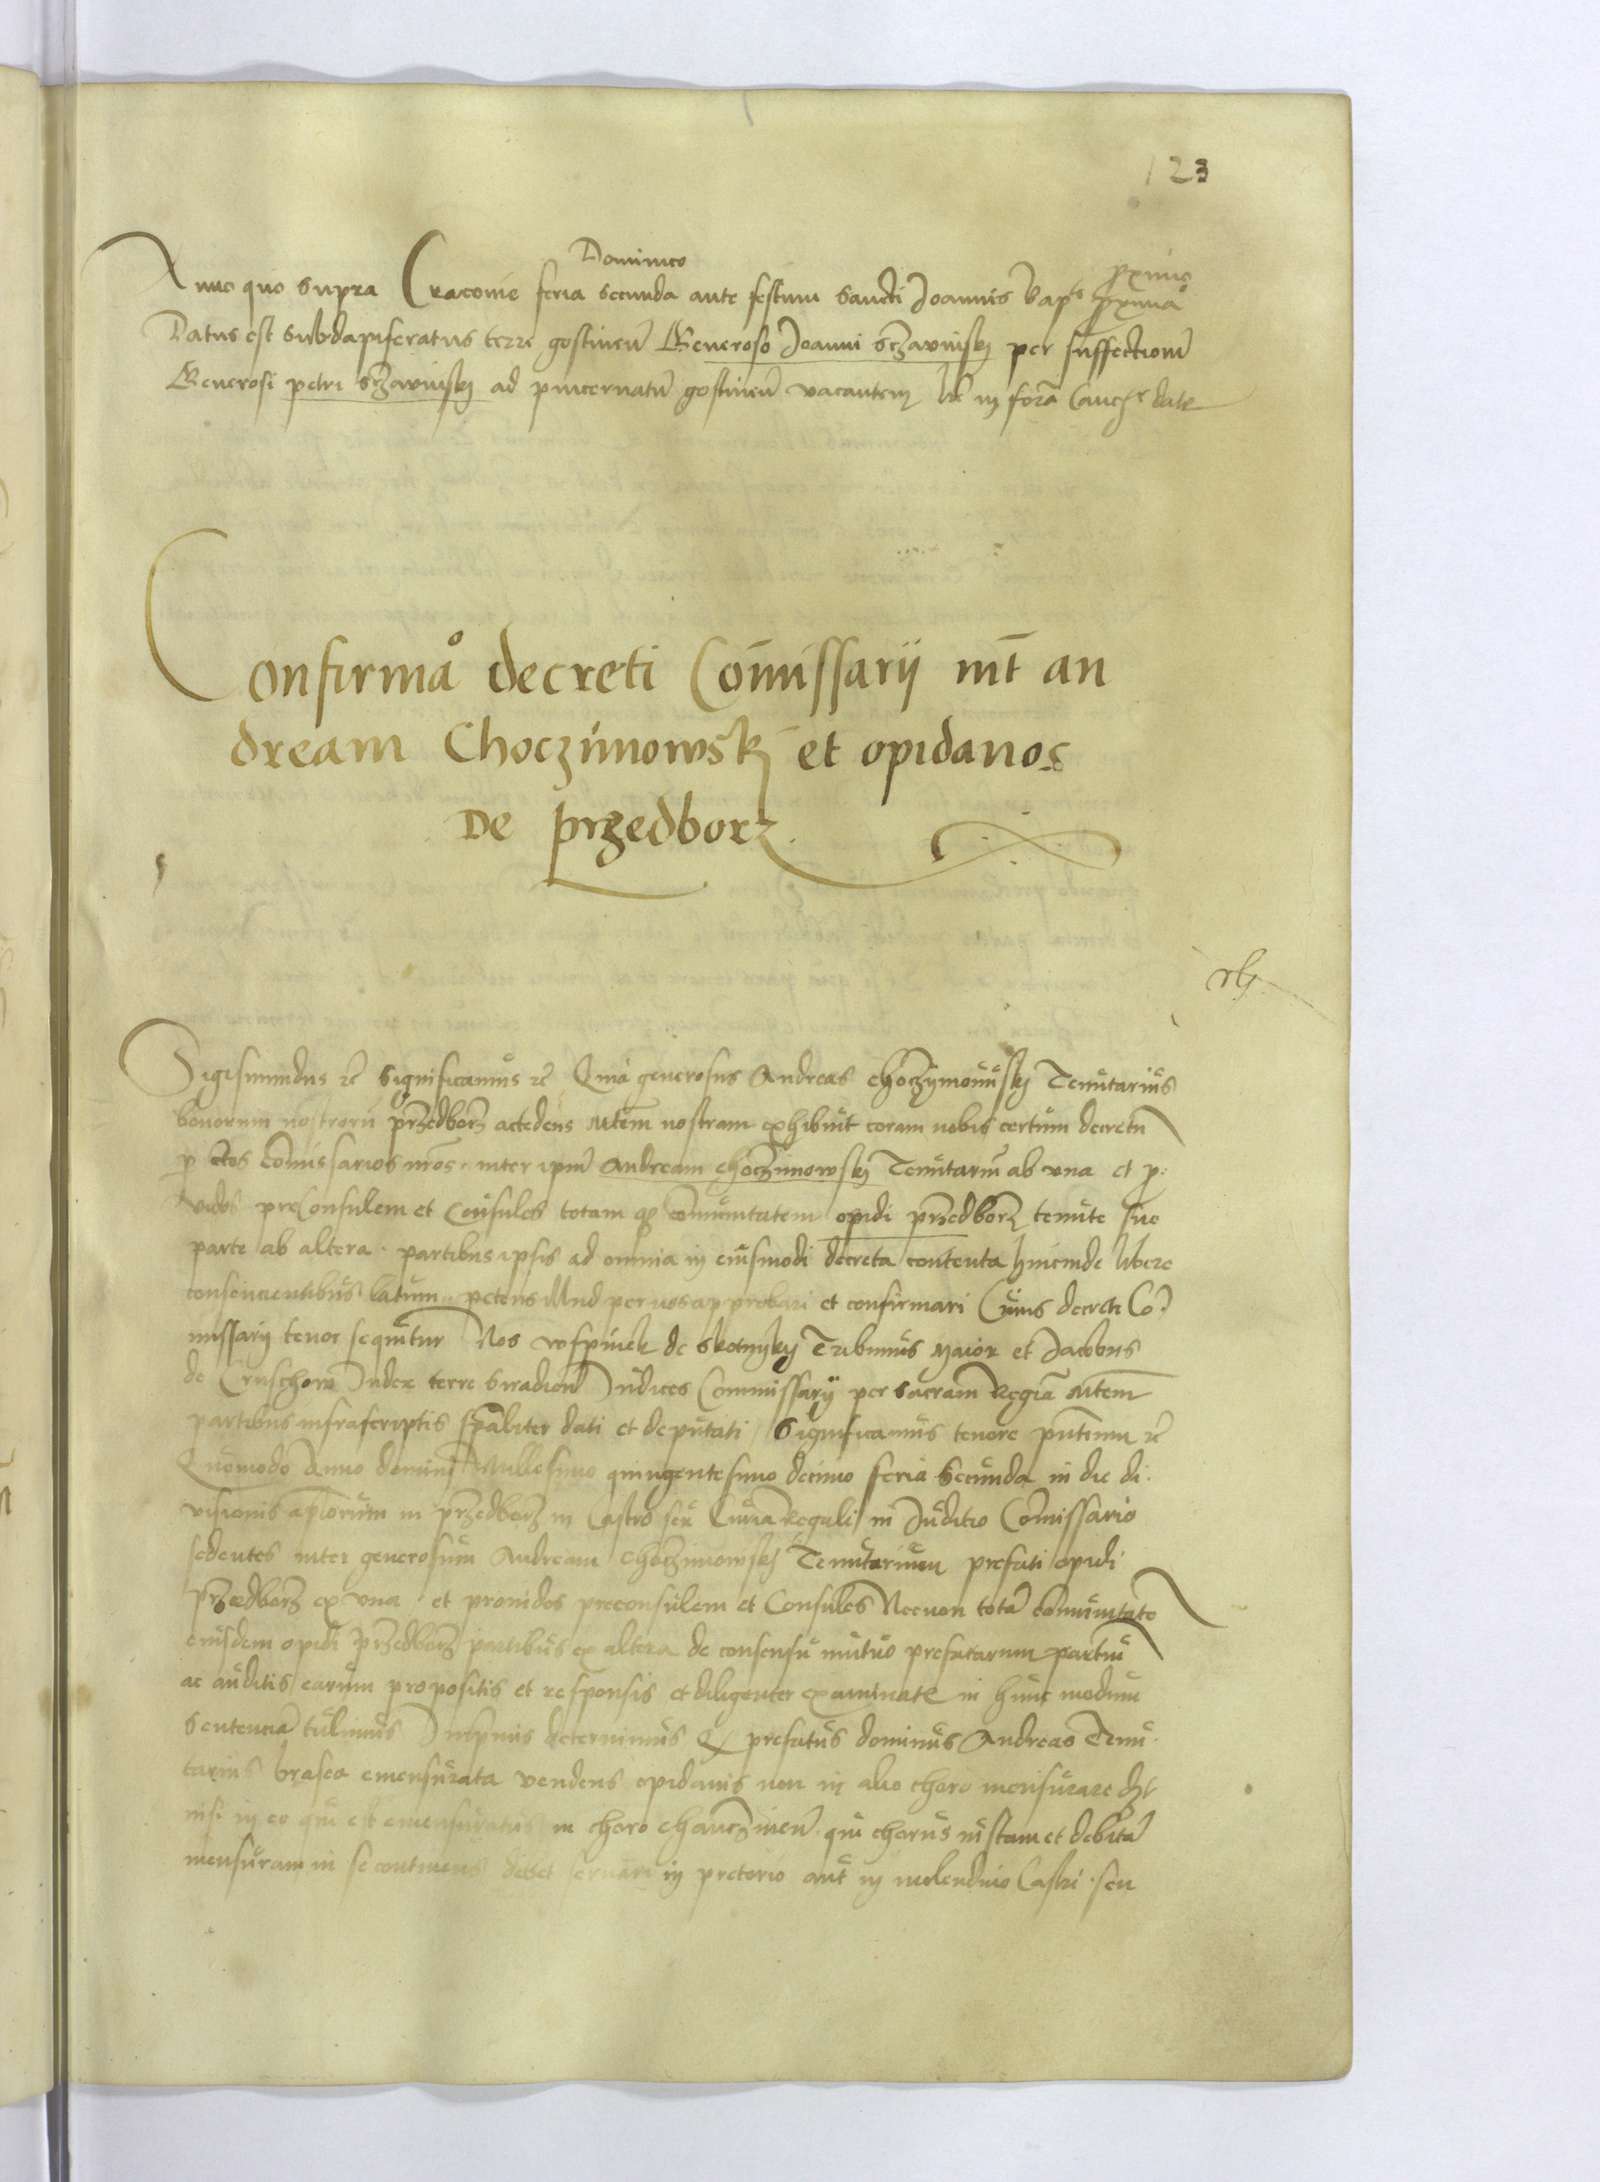 123
Dominico proximo
Anno quo supra Cracovie feria secunda ante festum sancti Joannis bapte proxima
Datus est subdapiferatus terre gostinen Generoso Joanni Sczawinskj per suffectionem
Generosi petri Sczawinskj ad pincernatum gostinen vacantem lre in forma Canc date
Confirmao decreti Comissarij int an
dream Choczimowskj et opidanos
De przedborz
rh
Sigismundus rc Significamus rc Quia generosus Andreas choczymowskj Tenutarius
bonorum nostrorum przedborz accedens Mtem nostram exhibuit coram nobis certum decretum
p ctos Comissarios nros inter ipm Andream choczimowskj Tenutarium ab vna et p
vidos preConsulem et Consules totam qz comunitatem opidi przedborz tenute sue
parte ab altera partibus ipsis ad omnia in eiusmodi decreta contenta hincinde libere
consencientibus latum petens illud per nos approbari et confirmari Cuius decreti Co
missarij tenor sequitur Nos de Skotnykj Tribunus Maior et Jacobus
de Cruschow Judex terre Siradien Judices Commissarij per Sacram Regiam Mtem
partibus infrascriptis spaliter dati et deputati Significamus tenore pntium rc
Quomodo Anno domini Millesimo quingentesimo decimo feria Secunda in die di
visionis aplorum in przedborz in Castro seu Curia Regali in Juditio Comissario
sedentes inter generosum Andream choczimowskj Tenutarium prefati opidi
przedborz ex vna et providos preconsulem et Consules Necnon totam comunitatem
eiusdem opidi przedborz partibus ex altera de consensu mutuo prefatarum partium
ac auditis earum propositis et responsis et diligenter examinate in hunc modum
Sentenciam tulimus Inprimis decernimus Q prefatus dominus Andreas Tenu
tarius brasea emensurata vendens opidanis non in alio choro mensurare dz
nisi in eo qui est emensuratus in choro chanczinen qui chorus iustam et debitam
mensuram in se continens debet servari in pretorio aut in molendino Castri seu